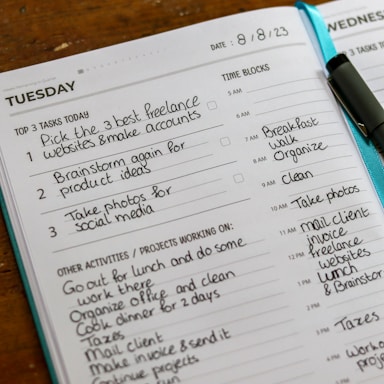 DATE: 8/8/23
TUESDAY
TOP 3 TASKS TODAY
1 Pick the 3 best freelance
websites & make accounts
2 Brainstorm again for
product ideas
3 Take photos for
social media
OTHER ACTIVITIES / PROJECTS WORKING ON:
Go out for lunch and do some
work there
Organize office and clean
Cook dinner for 2 days
Taxes
Mail client
Make invoice & send it
Continue projects
run
TIME BLOCKS
5 AM
6 AM
7 AM Breakfast
walk
8 AM Organize
9 AM Clean
10 AM Take photos
11 AM mail client
invoice
12 PM freelance
websites
1 PM lunch
& Brainstor
2 PM
3 PM Taxes
4 PM Work
proje
WEDNES
TOP 3 TASKS
1
2
3